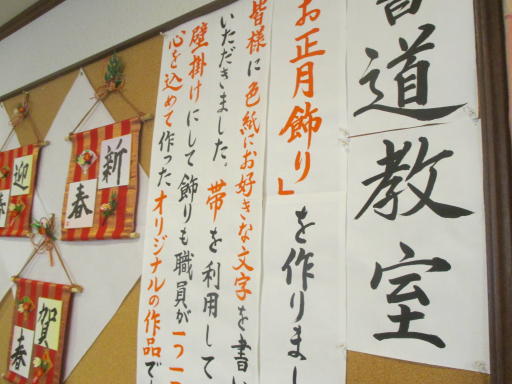 書道教室
お正月飾り」を作りまし
皆様に色紙にお好きな文字を書い
いただきました。帯を利用して
壁掛けにして飾りも職員が一つ一
心を込めて作ったオリジナルの作品で
新春
迎春
賀春